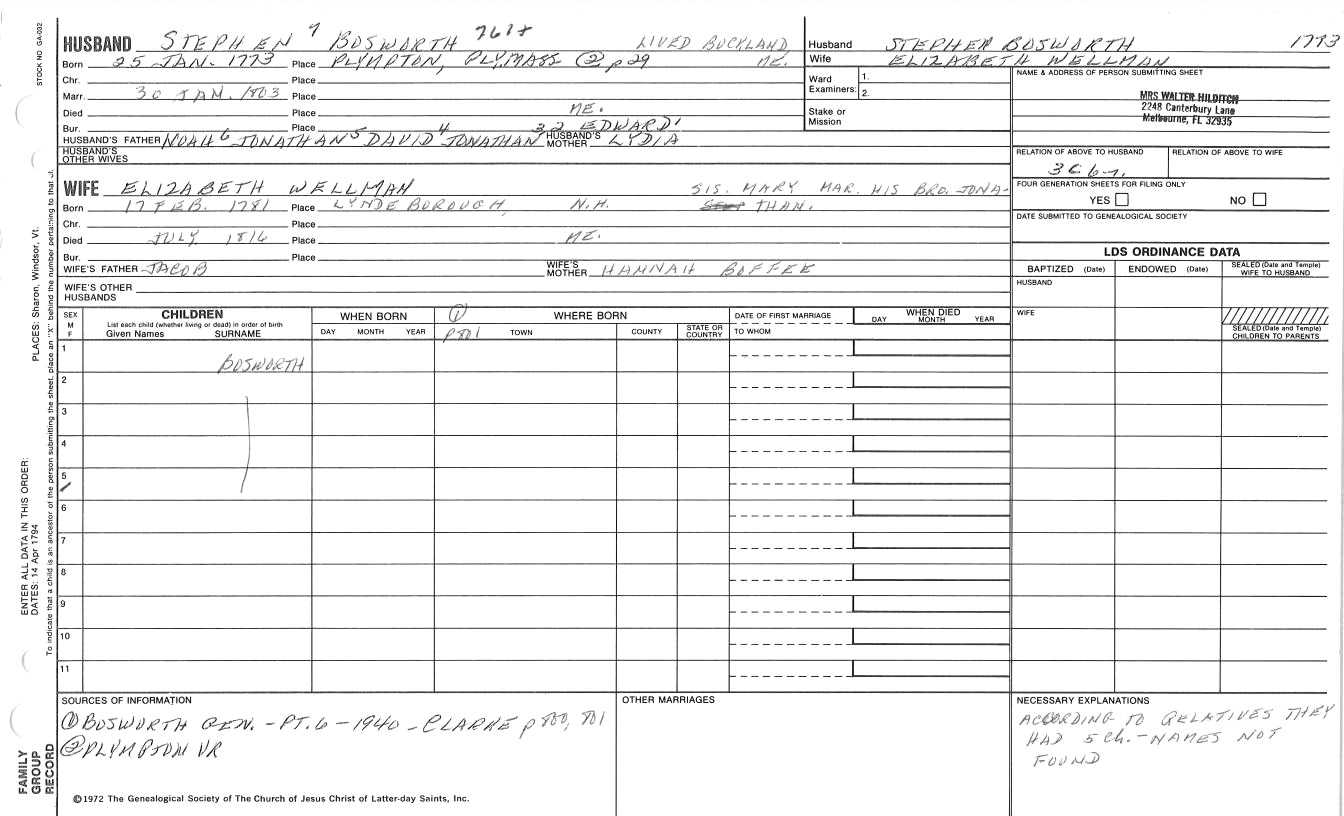 STOCK NO GA-032
HUSBAND STEPHEN 7 BOSWORTH 7674 LIVED BUCKLAND, ME.
Born 25 JAN. 1773 Place PLYMPTON, PLY, MASS ② p 29
Chr. Place
Marr. 30 JAN. 1803 Place
Died Place ME.
Bur. Place
HUSBAND'S FATHER NOAH 6 JONATHAN 5 DAVID 4 JONATHAN 3 2 EDWARD 1 HUSBAND'S MOTHER LYDIA
HUSBAND'S OTHER WIVES
Husband STEPHEN BOSWORTH 1773
Wife ELIZABETH WELLMAN
Ward Examiners: 1. 2.
Stake or Mission
NAME & ADDRESS OF PERSON SUBMITTING SHEET
MRS WALTER HILDITCH
2248 Canterbury Lane
Melbourne, FL 32935
RELATION OF ABOVE TO HUSBAND RELATION OF ABOVE TO WIFE
3C 6
FOUR GENERATION SHEETS FOR FILING ONLY
YES NO
DATE SUBMITTED TO GENEALOGICAL SOCIETY
WIFE ELIZABETH WELLMAN SIS. MARY MAR. HIS BRO. JONA-
Born 17 FEB. 1781 Place LYNDEBOROUGH, N.H. THAN.
Chr. Place
Died JULY 1816 Place ME.
Bur. Place
WIFE'S FATHER JACOB WIFE'S MOTHER HANNAH BOFFEE
WIFE'S OTHER HUSBANDS
LDS ORDINANCE DATA
BAPTIZED (Date) ENDOWED (Date) SEALED (Date and Temple) WIFE TO HUSBAND
HUSBAND
WIFE
SEALED (Date and Temple) CHILDREN TO PARENTS
SEX M F
CHILDREN
List each child (whether living or dead) in order of birth
Given Names SURNAME
WHEN BORN
DAY MONTH YEAR
① p 801
WHERE BORN
TOWN COUNTY STATE OR COUNTRY
DATE OF FIRST MARRIAGE
TO WHOM
WHEN DIED
DAY MONTH YEAR
1 BOSWORTH
2
3
4
5
6
7
8
9
10
11
SOURCES OF INFORMATION
① BOSWORTH GEN. - PT. 6 - 1940 - CLARKE p 800, 801
② PLYMPTON VR
OTHER MARRIAGES
NECESSARY EXPLANATIONS
ACCORDING TO RELATIVES THEY
HAD 5 Ch. - NAMES NOT
FOUND
©1972 The Genealogical Society of The Church of Jesus Christ of Latter-day Saints, Inc.
FAMILY GROUP RECORD
ENTER ALL DATA IN THIS ORDER:
DATES: 14 Apr 1794
PLACES: Sharon, Windsor, Vt.
To indicate that a child is an ancestor of the person submitting the sheet, place an "X" behind the number pertaining to that